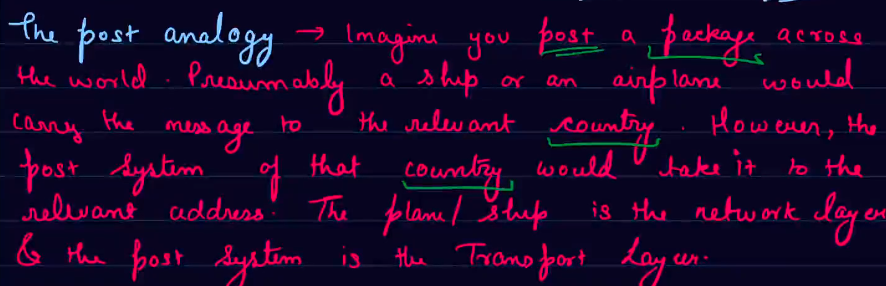 The post analogy → Imagine you post a package across
the world. Presummably a ship or an airplane would
carry the message to the relevant country. However, the
post system of that country would take it to the
relevant address. The plane/ship is the network layer
& the post system is the Transport Layer.